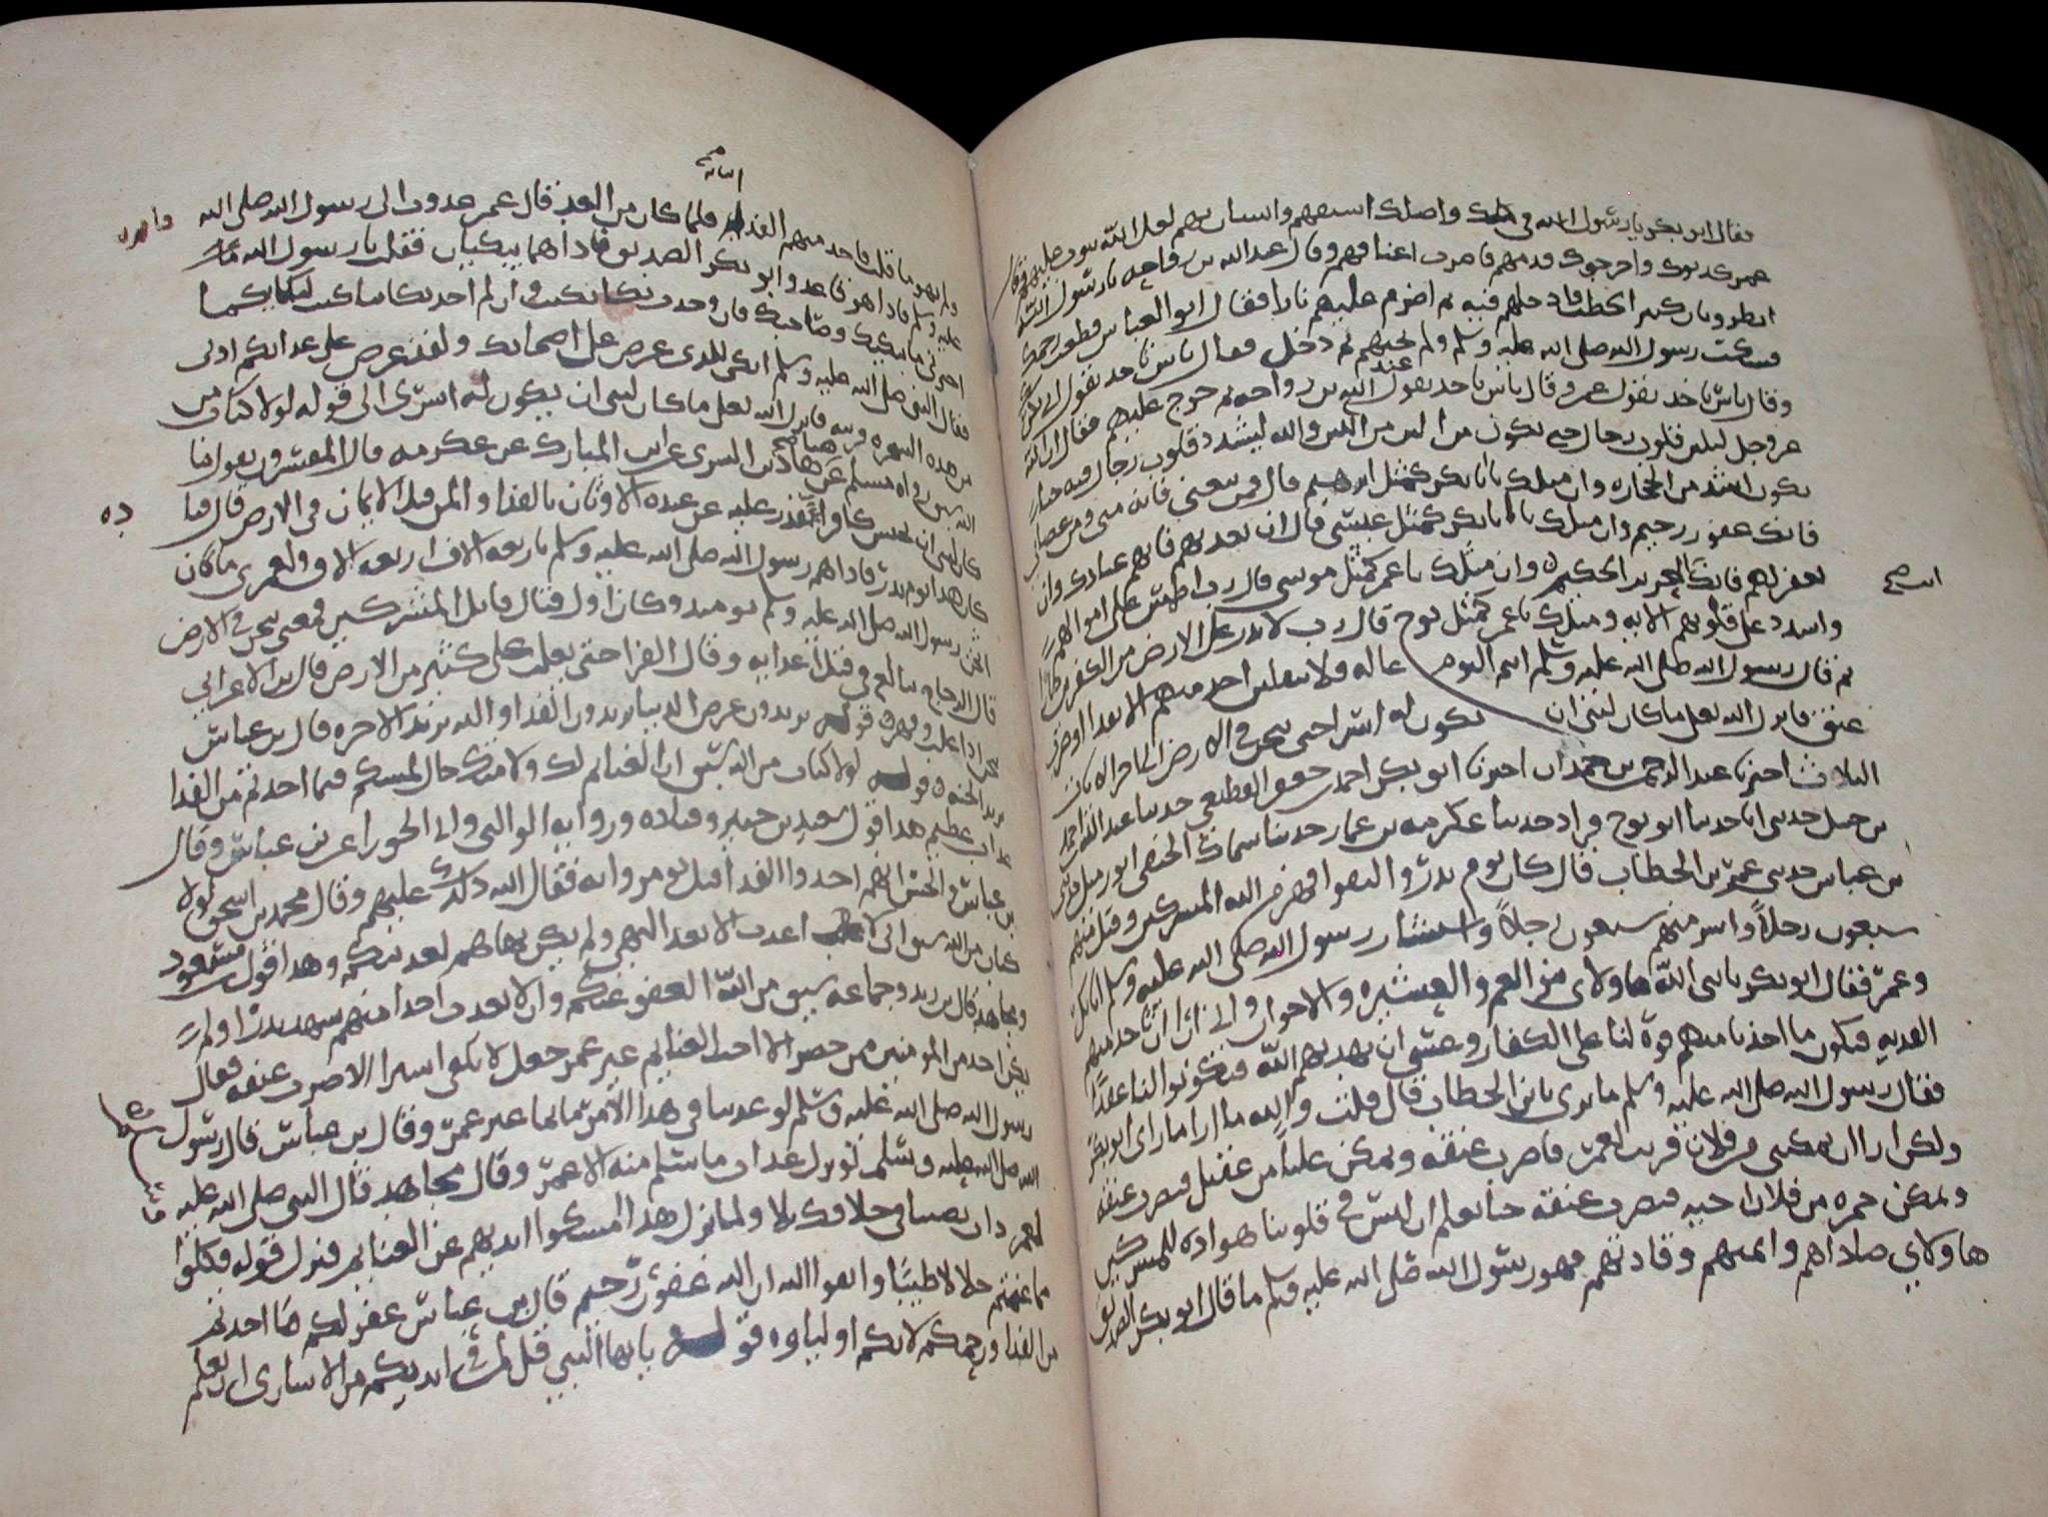 فقال ابو بكر يا رسول الله قومك واصلك استبقهم واستان بهم لعل الله يتوب عليهم وقال
عمر كذبوك واخرجوك قدمهم فاضرب اعناقهم وقال عبد الله بن رواحه يا رسول الله
انظر واديا كثير الحطب فادخلهم فيه ثم اضرم عليهم نارا فقال ابو العباس قطعت رحمك
فسكت رسول الله صلى الله عليه وسلم ولم يجبهم ثم دخل فقال ناس ياخذ بقول ابي بكر
وقال ناس ياخذ بقول عمر وقال ناس ياخذ بقول عبد الله بن رواحه ثم خرج عليهم فقال ان الله
عز وجل ليلين قلوب رجال حتى يكون من الين من اللبن والله ليشدد قلوب رجال فيه حتى
يكون اشد من الحجاره وان مثلك يا ابا بكر كمثل ابرهيم قال فمن تبعني فانه مني ومن عصاني
فانك غفور رحيم وان مثلك يا ابا بكر كمثل عيسى قال ان تعذبهم فانهم عبادك وان
تغفر لهم فانك انت العزيز الحكيم وان مثلك يا عمر كمثل موسى قال رب اطمس على اموالهم
واشدد على قلوبهم الايه ومثلك يا عمر كمثل نوح قال رب لا تذر على الارض من الكفرين ديارا
ثم قال رسول الله صلى الله عليه وسلم انتم اليوم عاله ولا ينفلتن احد منهم الا بفدا او ضرب
عنق فانزل الله تعلى ما كان لنبي ان يكون له اسرا حتى يثخن في الارض الى اخر الايات
الثلاث اخبرنا عبد الرحمن بن حمدان اخبرنا ابو بكر احمد بن جعفر القطيعي حدثنا عبد الله بن احمد
بن حنبل حدثني ابي حدثنا ابو نوح قراد حدثنا عكرمه بن عمار حدثنا سماك الحنفي ابو زميل حدثني
بن عباس حدثني عمر بن الخطاب قال كان يوم بدر والتقوا فهزم الله المشركين وقتل منهم
سبعون رجلا واسر منهم سبعون رجلا واستشار رسول الله صلى الله عليه وسلم ابا بكر
وعمر فقال ابو بكر يا نبي الله هاولاي بنو العم والعشيره والاخوان واني ارى ان تاخذ منهم
الفديه فيكون ما اخذنا منهم قوة لنا على الكفار وعسى ان يهديهم الله فيكونوا لنا عضدا
فقال رسول الله صلى الله عليه وسلم ما ترى يا ابن الخطاب قال قلت والله ما ارا ما راى ابو بكر
ولكن ارا ان تمكنني من فلان قريب لعمر فاضرب عنقه وتمكن عليا من عقيل فيضرب عنقه
وتمكن حمزه من فلان اخيه فيضرب عنقه حتى يعلم ان ليس في قلوبنا هواده للمشركين
هاولاي صناديدهم وايمتهم وقادتهم فهوى رسول الله صلى الله عليه وسلم ما قال ابو بكر الصديق
انت صح
ولم يهو ما قلت فاخذ منهم الفدا فلما كان من الغد قال عمر غدوت الى رسول الله صلى الله
عليه وسلم فاذا هو قاعد وابو بكر الصديق واذا هما يبكيان فقلت يا رسول الله
اخبرني ما يبكيك وصاحبك فان وجدت بكا بكيت وان لم اجد بكا تباكيت لبكايكما
فقال النبي صلى الله عليه وسلم ابكي للذي عرض على اصحابك ولقد عرض على عذابكم ادنى
من هذه الشجره قريبه فانزل الله تعلى ما كان لنبي ان يكون له اسرى الى قوله لولا كتاب من
الله سبق رواه مسلم عن هناد بن السري عن ابن المبارك عن عكرمه قال المفسرون يقول ما
كان لنبي ان يحبس كافرا عليه عن عبده الاوثان بالفدا والمن قبل الاثخان في الارض قال
كان هذا يوم بدر فاداهم رسول الله صلى الله عليه وسلم باربعه الاف اربعه الاف ولعمري ما كان
اثخن رسول الله صلى الله عليه وسلم يوميذ وكان اول قتال قاتل المشركين فمعنى يثخن في الارض
قال الزجاج يبالغ في قتل اعدايه وقال الفرا حتى يغلب على كثير من الارض قال بن الاعرابي
اثخن اذا غلب وقهر قوله يريدون عرض الدنيا يريدون الفدا والله يريد الاخره قال بن عباس
يريد الجنه قوله لولا كتاب من الله سبق ان الغنايم لك ولامتك حلال لمسكم فيما اخذتم من الفدا
عذاب عظيم هذا قول سعيد بن جبير وقتاده وروايه الوالبي وابي الجوزا عن بن عباس وقال
بن عباس والحسن انهم اخذوا الفدا قبل ان يومروا به فقال الله ذلك عليهم وقال محمد بن اسحق لولا
كتاب من الله سبق اني لا اعذب الا بعد النهي ولم يكن نهاهم لعذبتكم وهذا قول مسعود
ومجاهد قال بن زيد وجماعه سبق من الله العفو عنكم وان لا يعذب احدا منهم شهد بدرا ولم
يكن احد من المومنين ممن حضر الا احب الغنايم غير عمر جعل لا يلقى اسيرا الا ضرب عنقه فقال
رسول الله صلى الله عليه وسلم لو عذبنا في هذا الامر ما نجا غير عمر وقال بن عباس قال رسول
الله صلى الله عليه وسلم لو نزل عذاب ما سلم منه الا عمر وقال مجاهد قال النبي صلى الله عليه
لعمر ولما نزل هذا امسكوا ايديهم عن الغنايم فنزل قوله فكلوا
مما غنمتم حلالا طيبا واتقوا الله ان الله غفور رحيم قال بن عباس غفر لكم ما اخذتم
من الفدا ورحمكم لانكم اولياوه قوله يايها النبي قل لمن في ايديكم من الاسارى ان يعلم